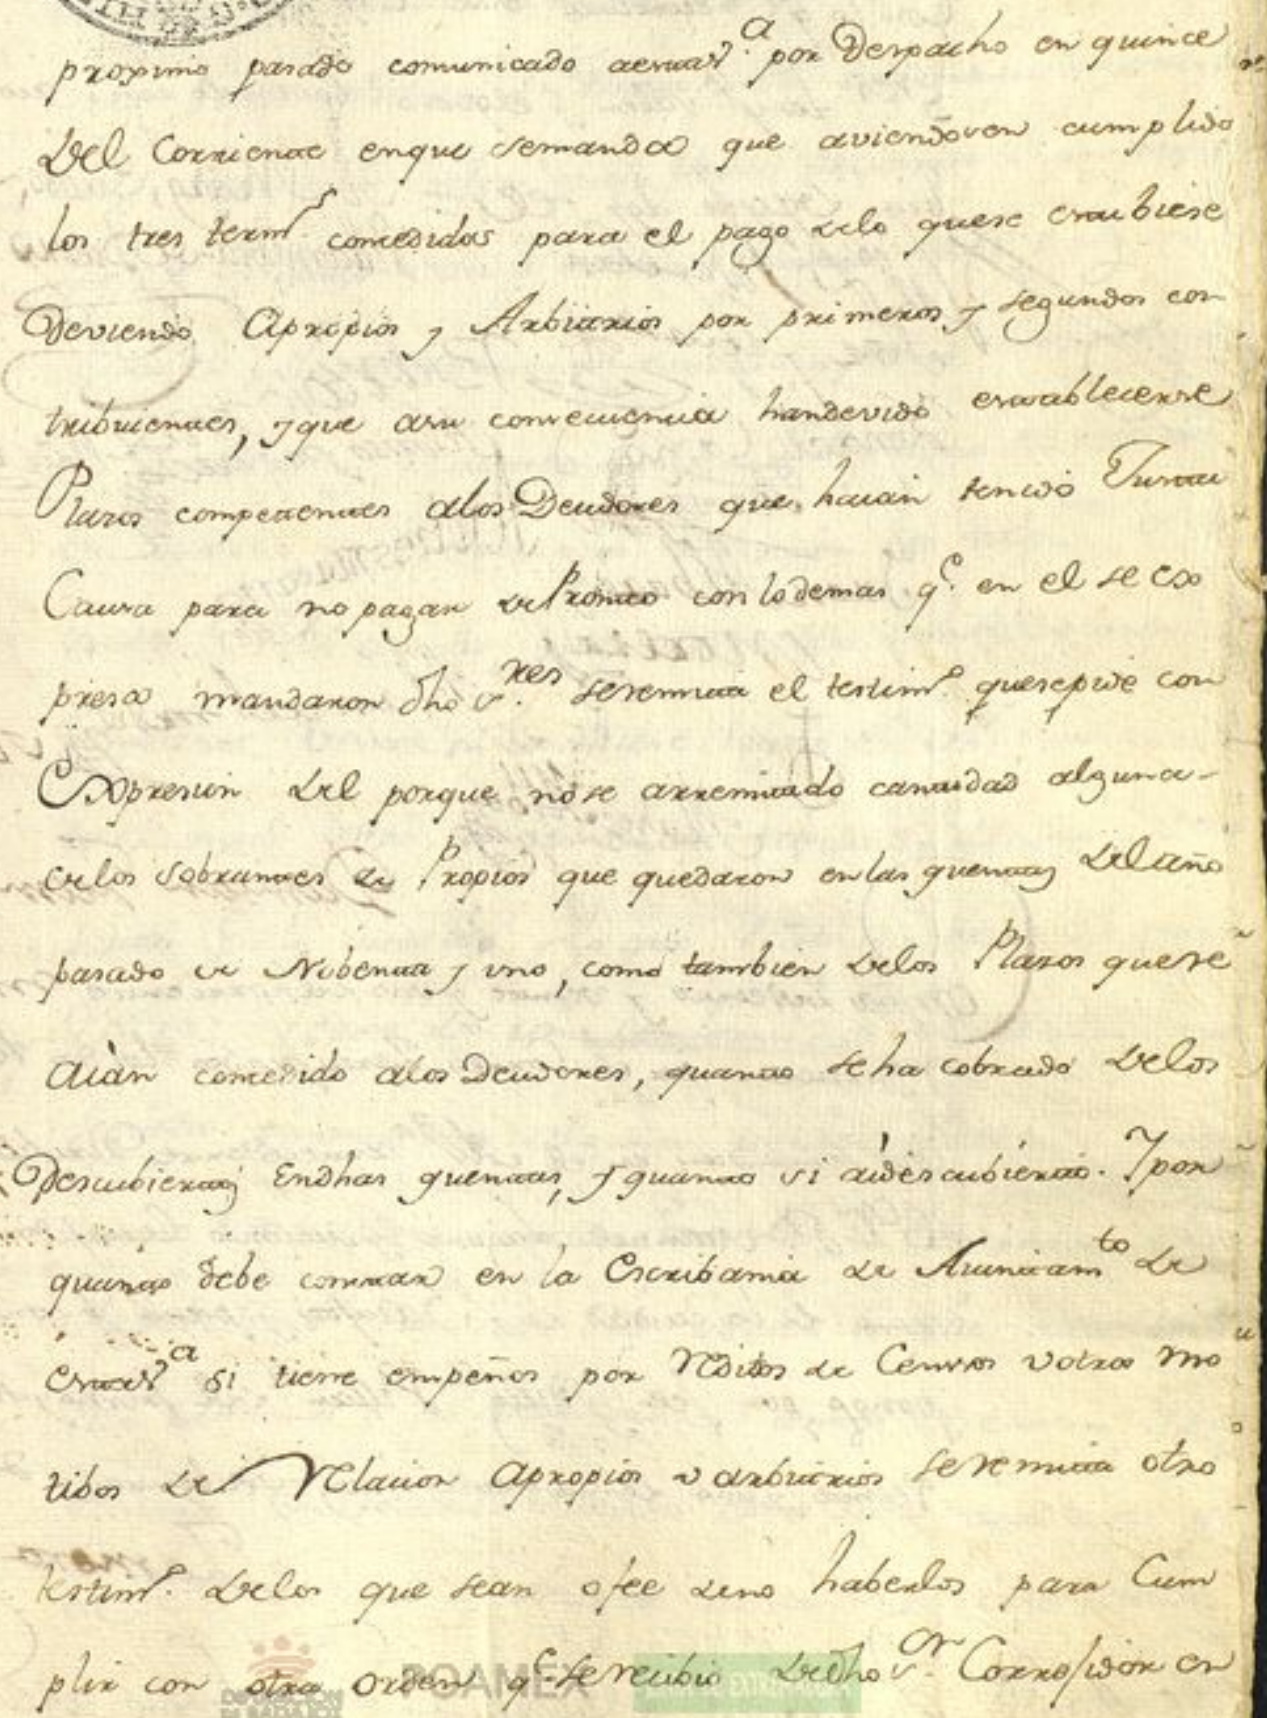 proximo pasado comunicado aestav.ª por Despacho en quince
del Corriente enque semanda que aviendosen cumplido
los tres term.s concedidos para el pago delo quese estubiese
Deviendo Apropios y Arbitrios por primeros y segundos con
tribuientes, y que asu consecuencia handevido establecerse
Plazos competentes alos Deudores que haian tenido Justa
Causa para no pagar de Pronto con lodemas q.e en el se ex
presa mandaron dho s.res seremita el testim.o quesepide con
Expresion del porque nose arremitido cantidad alguna
delos sobrantes de Propios que quedaron enlas quentas delaño
pasado de Nobenta y uno, como tambien delos Plazos quese
aiàn concedido alos Deudores, quanto seha cobrado delos
Descubiertos Endhas quentas, y quanto si aidescubierto. Ypor
quanto debe constar en la Escribania de Aiuntam.to de
estav.a si tiene empeños por Reditos de Censos votros mo
tibos de Relacion apropios v arbitrios seremita otro
testim.o delos que sean ofee deno haberlos para Cum
plir con otra orden q.e serecibio dedho s.or Correxidor en
SOAMEX